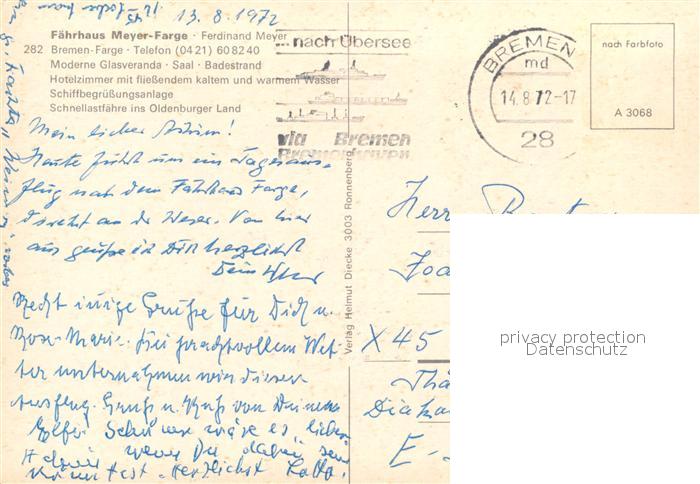 13.8.1972
Fährhaus Meyer-Farge · Ferdinand Meyer
282 Bremen-Farge · Telefon (0421) 608240
Moderne Glasveranda · Saal · Badestrand
Hotelzimmer mit fließendem kaltem und warmem Wasser
Schiffbegrüßungsanlage
Schnellastfähre ins Oldenburger Land
...nach Übersee
via Bremen
BREMEN
md
14.8.72-17
28
nach Farbfoto
A 3068
Mein lieber
Heute führt uns ein Tagesaus-
flug nach dem Fährhaus Farge,
direkt an der Weser. Von hier
aus grüße ich Dich herzlichst
Dein
Recht innige Grüße für Dich u.
Rose-Marie. Bei prachtvollem Wet-
ter unternahmen wir diesen
Ausflug. Gruß u. Kuß von Deinem
Schöner wäre es, lieber
wenn Du dabei sein
könntest. Herzlichst Lotto.
Verlag Helmut Diecke 3003 Ronnenberg
Herr
X 45
privacy protection
Datenschutz